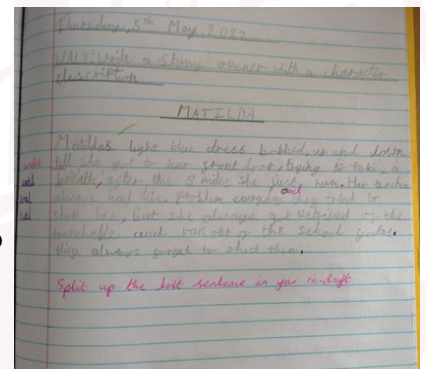 Thursday, 5th May 2022
WALT: write a story opener with a character
description
MATILDA
Matildas light blue dress bobbed, up and down
till she got to her front door, trying to take a
breath, after the 5 miles she just ran. Her teacher
always had this problem everyday and they tried to
stop her, but she always got of the
and ran out of the school gates.
they always forgot to shut them.
Split up the last sentence in your re-draft